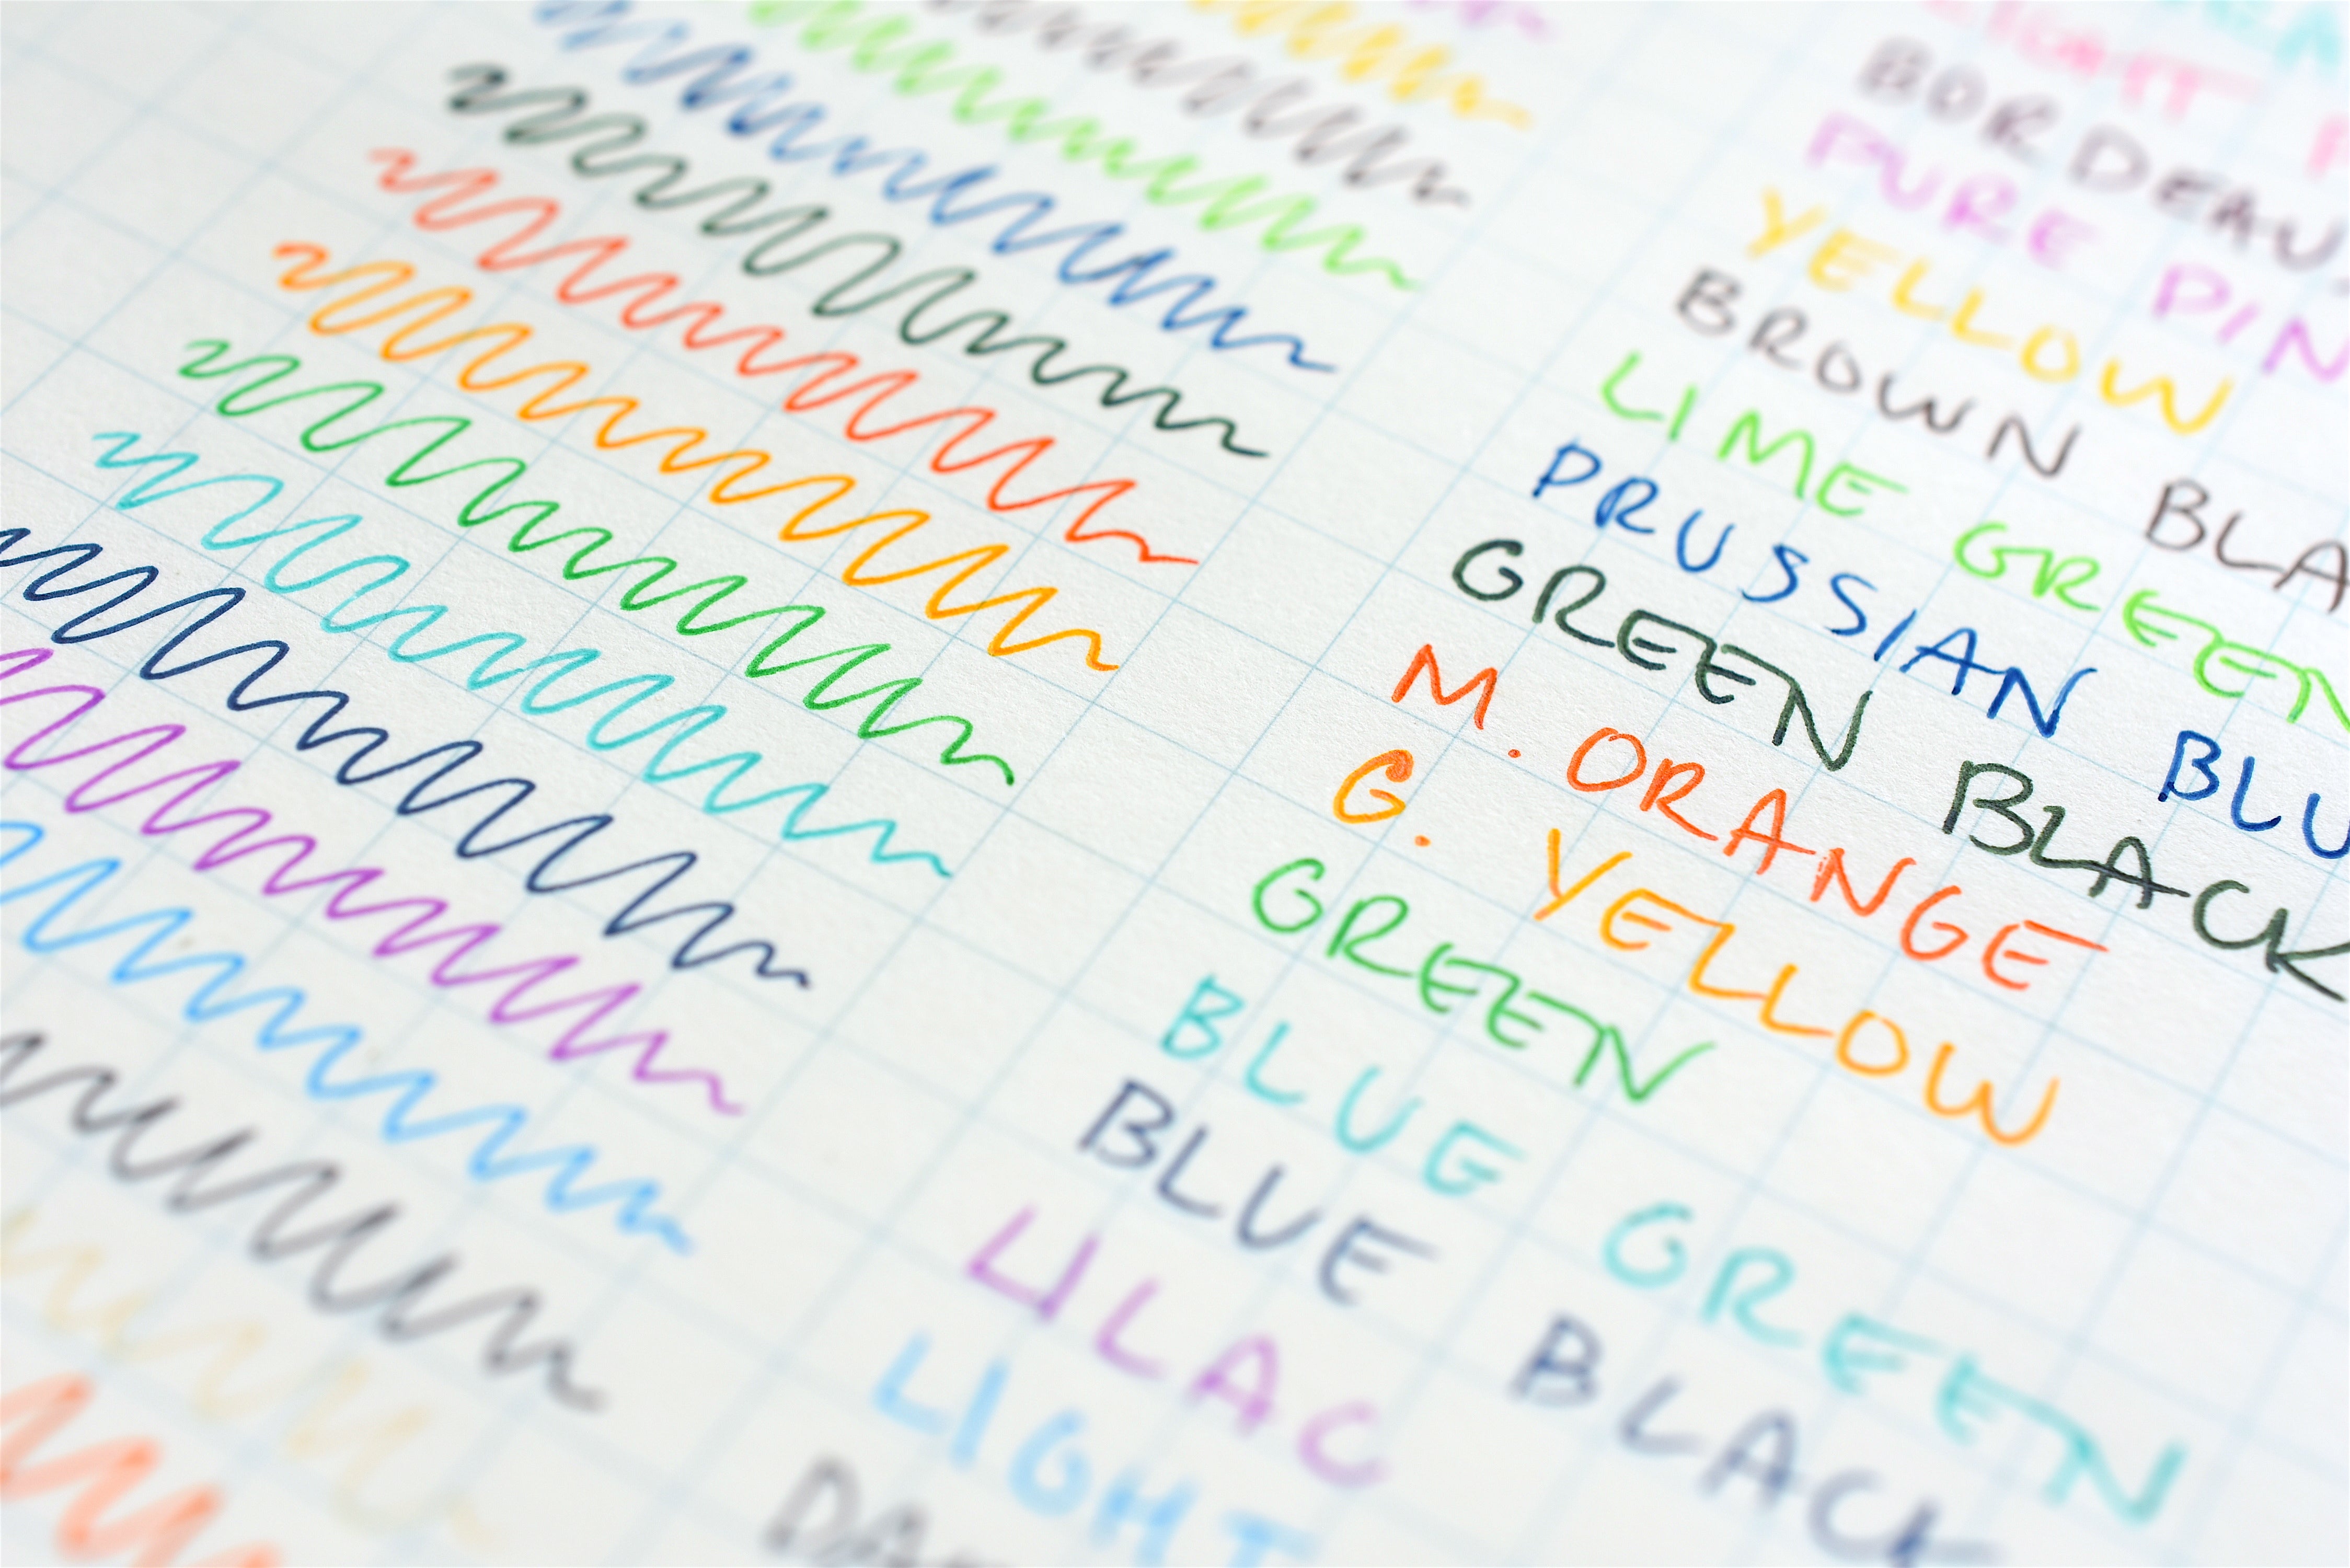 LIGHT
BORDEAU
PURE PIN
YELLOW
BROWN BLA
LIME GREEN
PRUSSIAN BLU
GREEN BLACK
M. ORANGE
G. YELLOW
GREEN
BLUE GREEN
BLUE BLACK
LILAC
LIGHT
DA